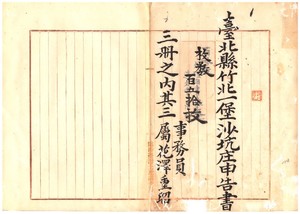 臺北縣竹北一堡沙坑庄申告書
枚數
百五拾枚
三冊之內其三
事務員
屬花澤重紹